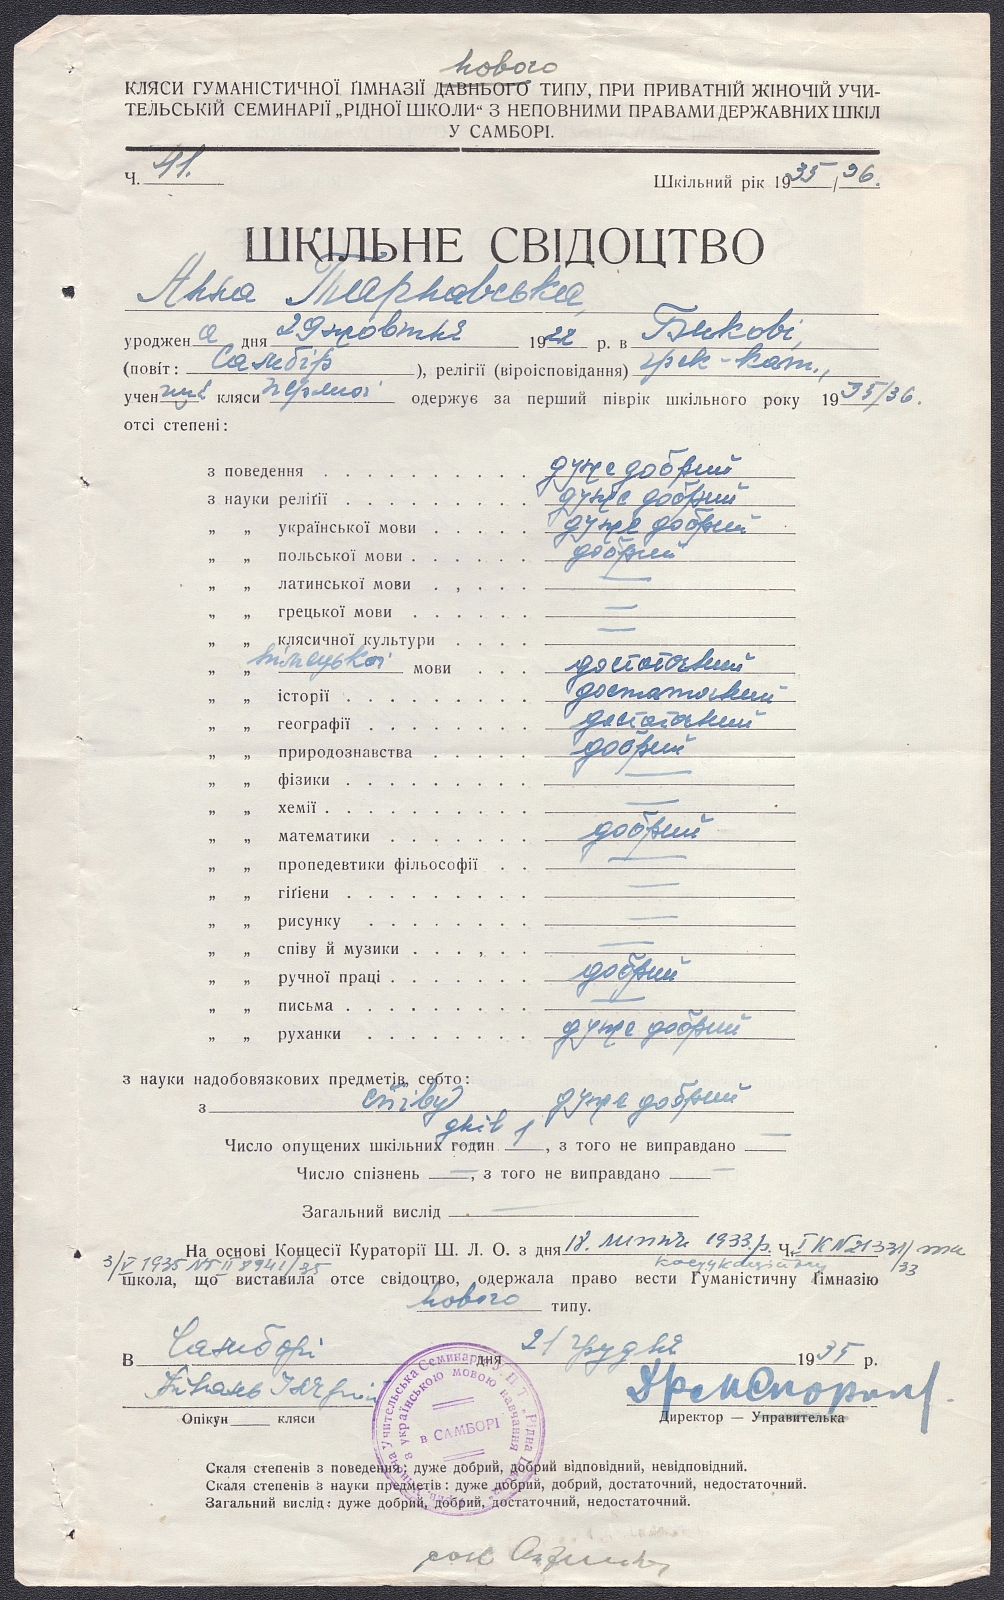 нового
КЛЯСИ ГУМАНІСТИЧНОЇ ҐІМНАЗІЇ ДАВНЬОГО ТИПУ, ПРИ ПРИВАТНІЙ ЖІНОЧІЙ УЧИ-
ТЕЛЬСЬКІЙ СЕМИНАРІЇ „РІДНОЇ ШКОЛИ“ З НЕПОВНИМИ ПРАВАМИ ДЕРЖАВНИХ ШКІЛ
У САМБОРІ.
Ч. 41.
Шкільний рік 1935/36.
ШКІЛЬНЕ СВІДОЦТВО
Анна Тарнавська,
уроджена дня 29 жовтня 1922 р. в Бикові,
(повіт: Самбір ), релігії (віроісповідання) грек-кат.,
учениця кляси першої одержує за перший піврік шкільного року 1935/36.
отсі степені:
з поведення . . . . . . . . дуже добрий
з науки релігії . . . . . . . дуже добрий
„ „ української мови . . . . дуже добрий
„ „ польської мови . . . . . добрий
„ „ латинської мови . . . . —
„ „ грецької мови . . . . . —
„ „ клясичної культури . . . . —
„ „ німецької мови . . . достаточний
„ „ історії . . . . . . . . достаточний
„ „ географії . . . . . . . достаточний
„ „ природознавства . . . . . добрий
„ „ фізики . . . . . . . . —
„ „ хемії . . . . . . . . . —
„ „ математики . . . . . . добрий
„ „ пропедевтики фільософії . . —
„ „ гігієни . . . . . . . . —
„ „ рисунку . . . . . . . —
„ „ співу й музики . . . . . —
„ „ ручної праці . . . . . . добрий
„ „ письма . . . . . . . . —
„ „ руханки . . . . . . . дуже добрий
з науки надобовязкових предметів, себто:
з співу дуже добрий
днів
Число опущених шкільних годин 1, з того не виправдано —
Число спізнень —, з того не виправдано —
Загальний вислід —
На основі Концесії Кураторії Ш. Л. О. з дня 18. липня 1933.р. Ч. І К N21331/33
3/V 1935 №II 8941/35
школа, що виставила отсе свідоцтво, одержала право вести Гуманістичну Гімназію
нового типу.
В Самборі дня 21 грудня 1935 р.
Опікун кляси
Директор — Управителька
в САМБОРІ
Скаля степенів з поведення: дуже добрий, добрий відповідний, невідповідний.
Скаля степенів з науки предметів: дуже добрий, добрий, достаточний, недостаточний.
Загальний вислід: дуже добрий, добрий, достаточний, недостаточний.